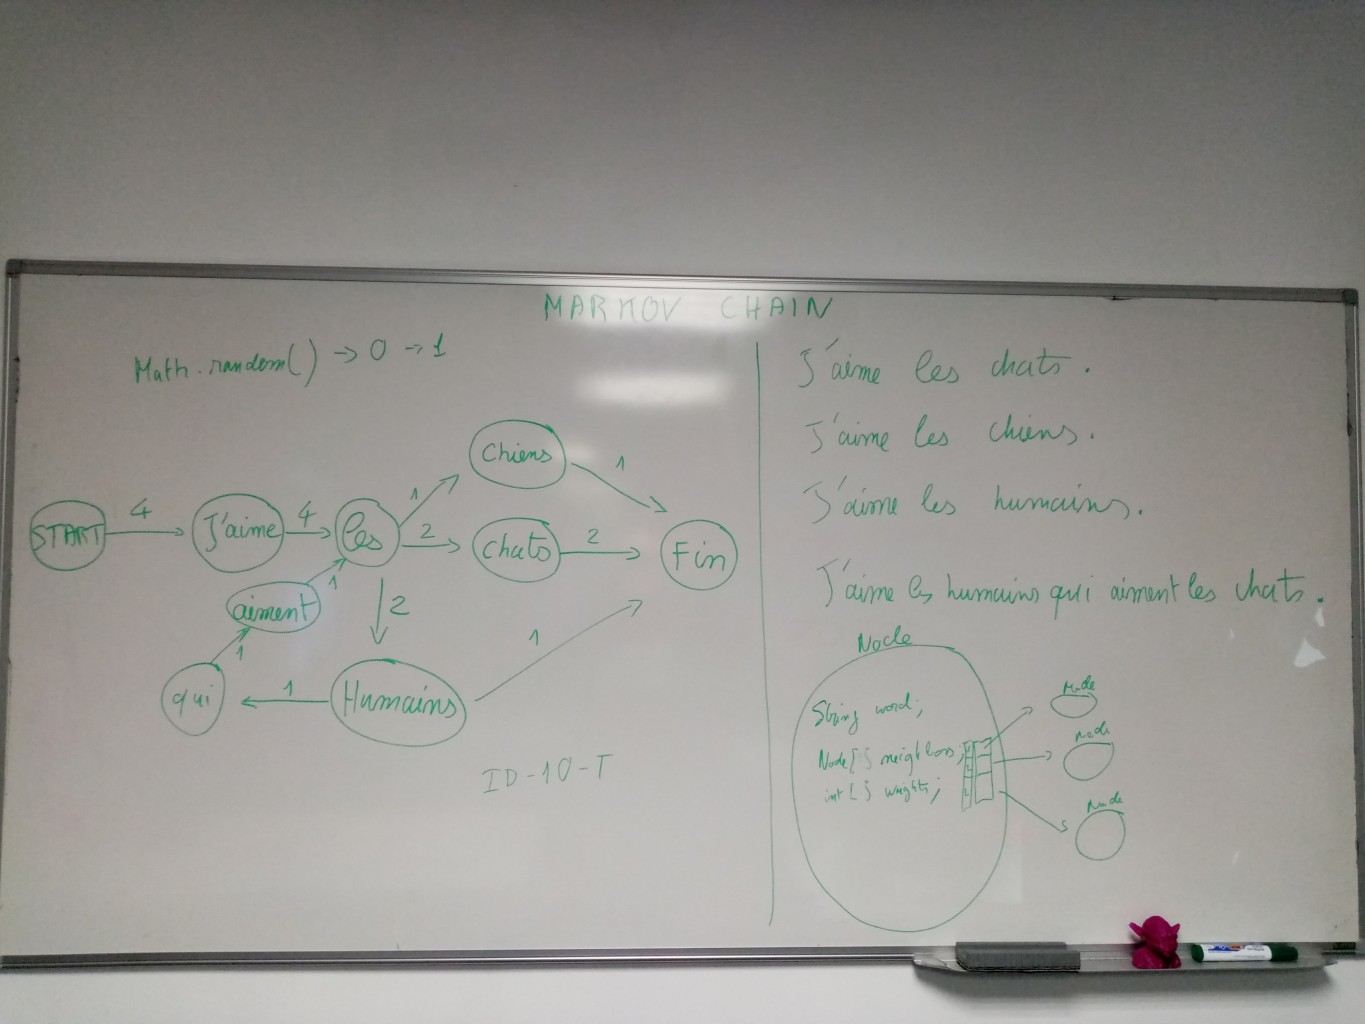 MARKOV CHAIN
Math.random() → 0 → 1
START
4
J'aime
4
les
1
Chiens
1
2
chats
2
Fin
aiment
1
2
1
qui
1
Humains
1
ID-10-T
J'aime les chats.
J'aime les chiens.
J'aime les humains.
J'aime les humains qui aiment les chats.
Node
String word;
Node[] neighbors;
int[] weights;
Node
Node
Node